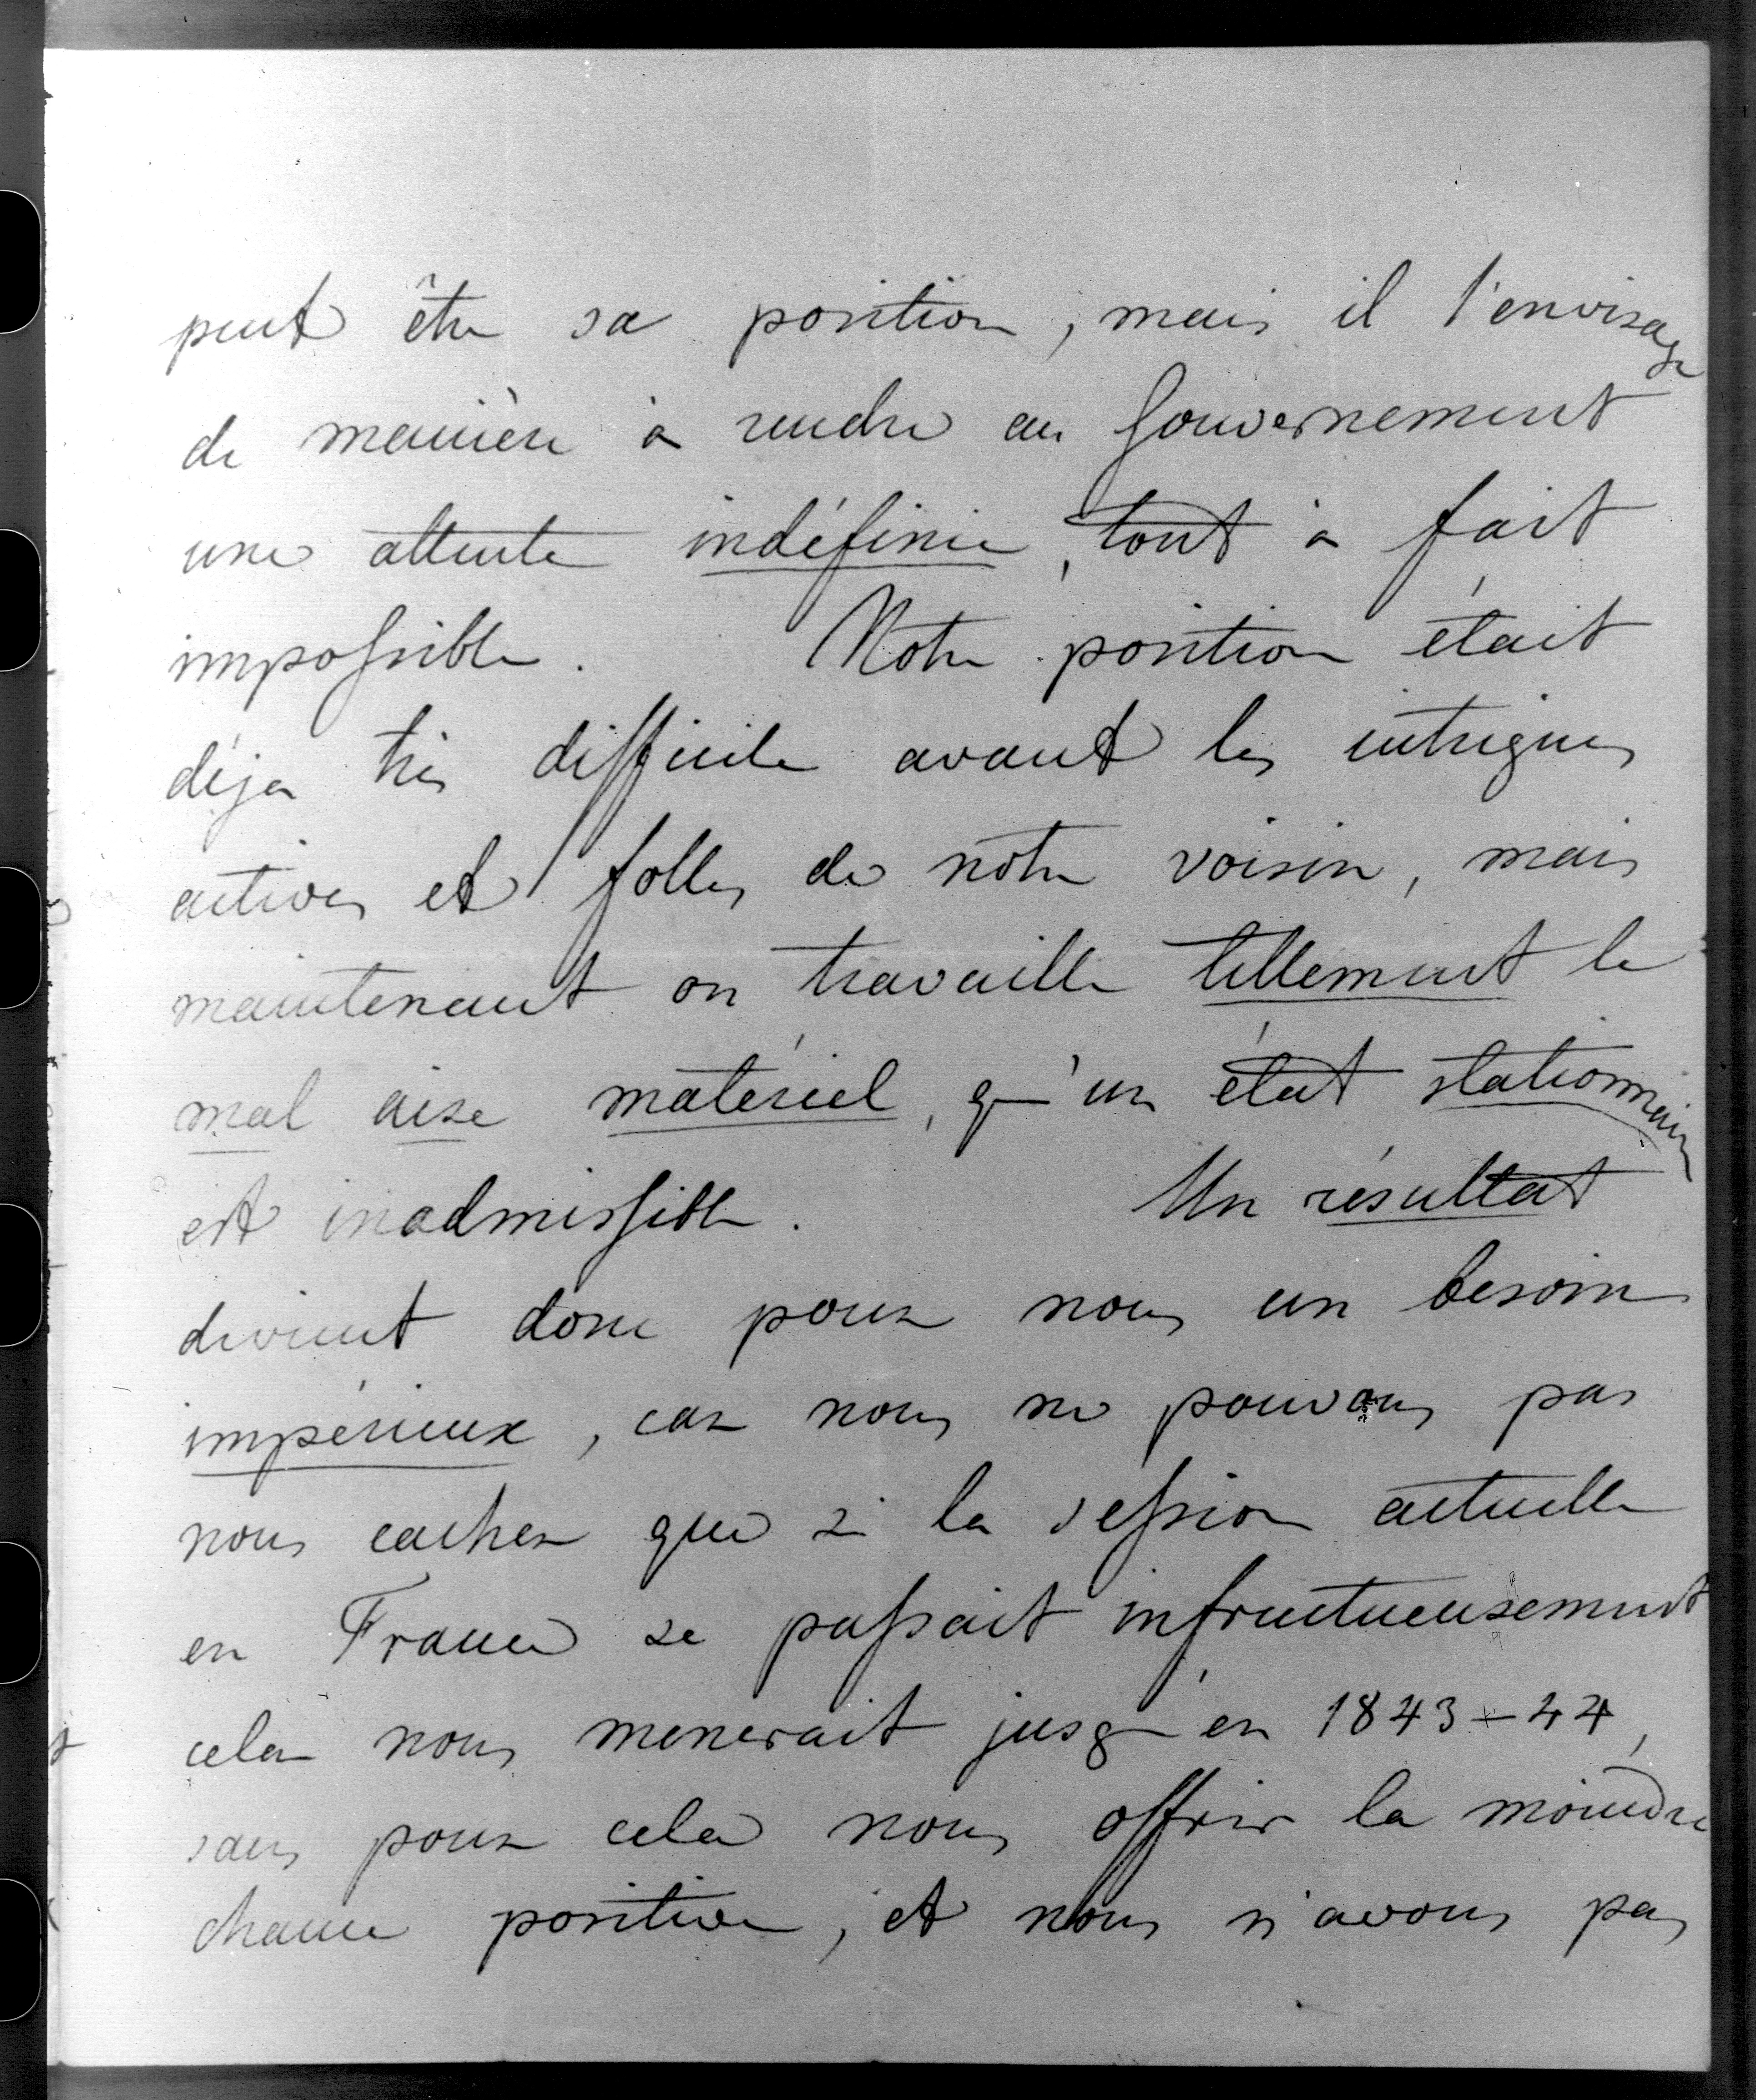 peut être sa position, mais il l'envisage
de manière à rendre au Gouvernement
une attente indéfinie, tout à fait
impossible. Notre position était
déja très difficile avant les intrigues
actives et folles de notre voisin, mais
maintenant on travaille tellement le
mal aise matériel, qu'un état stationnaire
est inadmissible. Un résultat
devient donc pour nous un besoin
impérieux, car nous ne pouvons pas
nous cacher que si la session actuelle
en France se passait infructueusement
cela nous menerait jusqu'en 1843-44,
sans pour cela nous offrir la moindre
chance positive, et nous n'avons pas